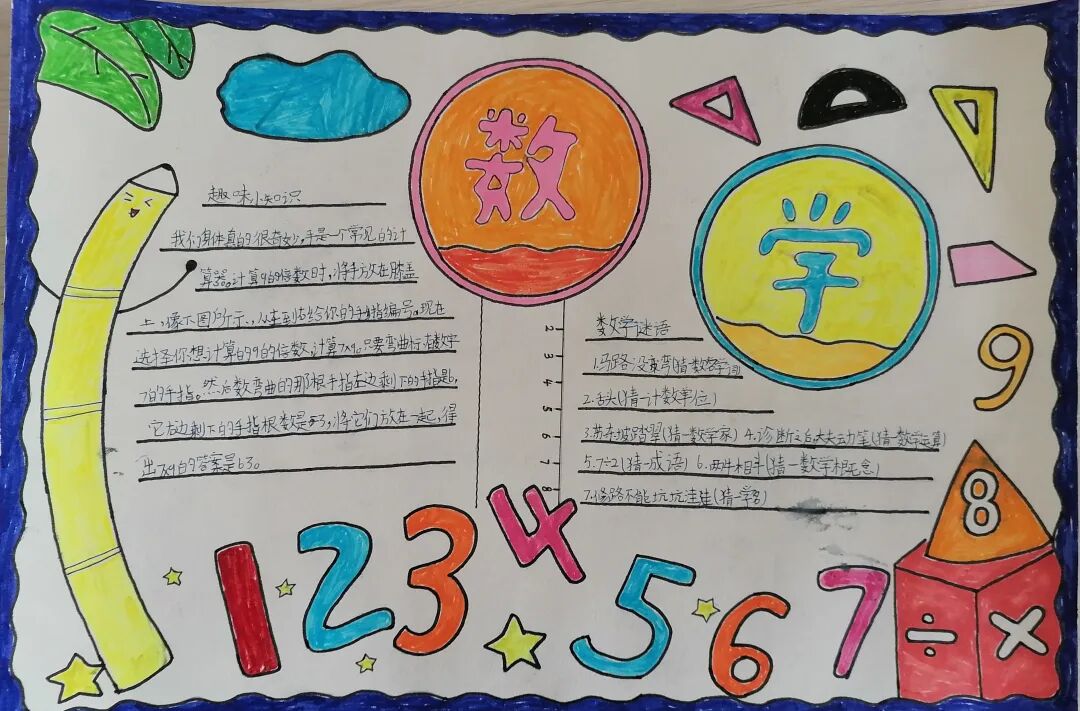 数
学
趣味小知识
我们身体真的很奇妙,手是一个常见的计
算器。计算9的倍数时,将手放在膝盖
上,像下图所示,从左到右给你的手指编号。现在
选择你想计算的9的倍数,计算7×9。只要弯曲标有数字
7的手指。然后数弯曲的那根手指左边剩下的手指是6,
它右边剩下的手指根数是3,将它们放在一起,得
出7×9的答案是63。
2
3
4
5
6
7
8
数学谜语
1.马路没有弯(猜一数学名词)
2.舌头(猜一计数单位)
3.苏东坡踏翠(猜一数学家) 4.诊断之后大夫动笔(猜一数学运算)
5.7÷2(猜一成语) 6.两牛相斗(猜一数学概念)
7.修路不能坑坑洼洼(猜一学名)
9
8
1 2 3 4 5 6 7
÷ ×